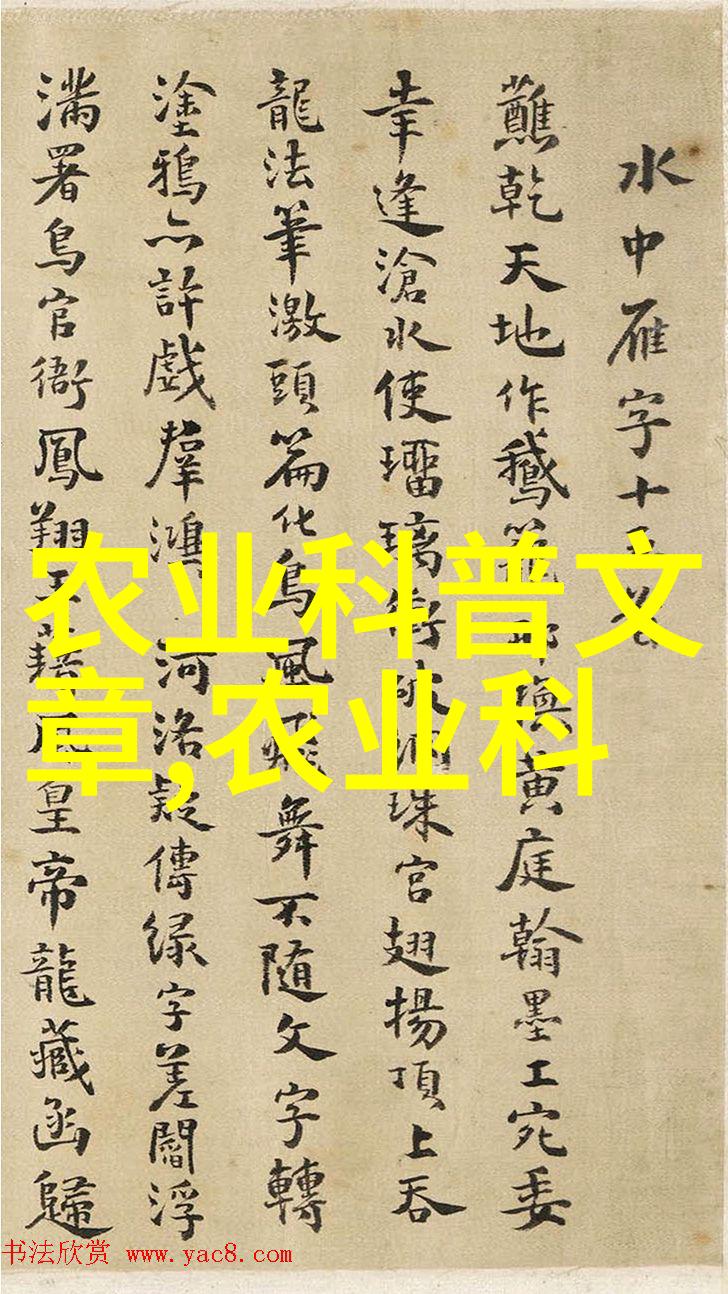 水中雁字十五首
蘸乾天地作鵝籠 黃庭翰墨工宛委
幸逢滄水使 珠宮翅揚頂上吞
龍法筆激頭篇化鳥風飛舞不随文字轉
塗鴉亦許戲羣鴻 河洛疑傳緑字差閻浮
滿署鳥官衙鳳翔 皇帝龍藏函歸
农业科普文
章,农业科
书法欣赏 www.yac8.com